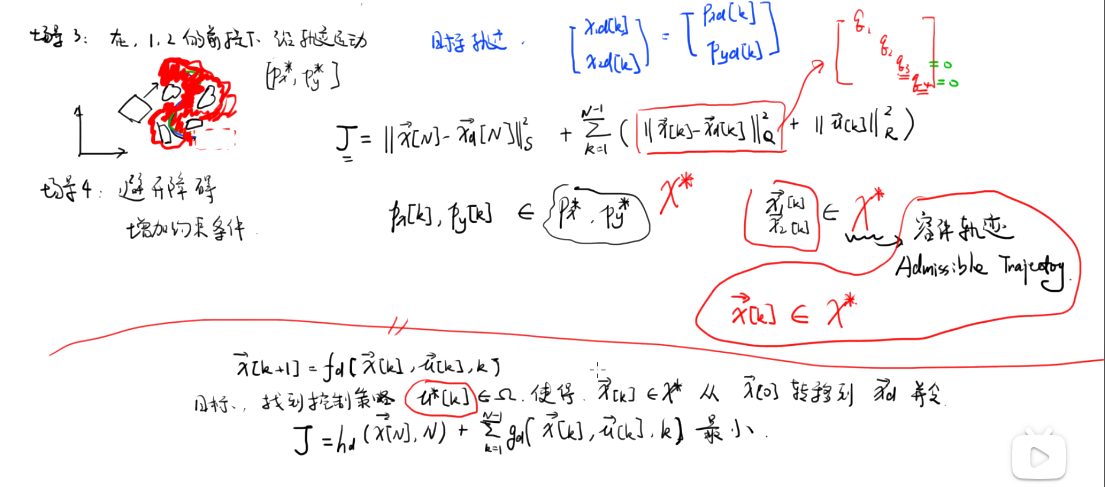 场景3: 在, 1, 2 的前提下, 沿轨迹运动
[px*, py*]
目标轨迹. [x1d[k] x2d[k]] = [pxd[k] pyd[k]]
[q1 q2 q3 q4] =0 =0
J = ||x⃗[N] - x⃗d[N]||²S + Σ_{k=1}^{N-1} ( ||x⃗[k] - x⃗d[k]||²Q + ||u⃗[k]||²R )
场景4: 避开障碍
增加约束条件.
px[k], py[k] ∈ px*, py* X*
x⃗1[k] x⃗2[k] ∈ X* → 容许轨迹
Admissible Trajectory.
x⃗[k] ∈ X*
x⃗[k+1] = fd[x⃗[k], u⃗[k], k]
目标:, 找到控制策略 u*[k] ∈ Ω. 使得. x⃗[k] ∈ X* 从 x⃗[0] 转移到 x⃗d 并令
J = hd(x⃗[N], N) + Σ_{k=1}^{N-1} gd( x⃗[k], u⃗[k], k) 最小.